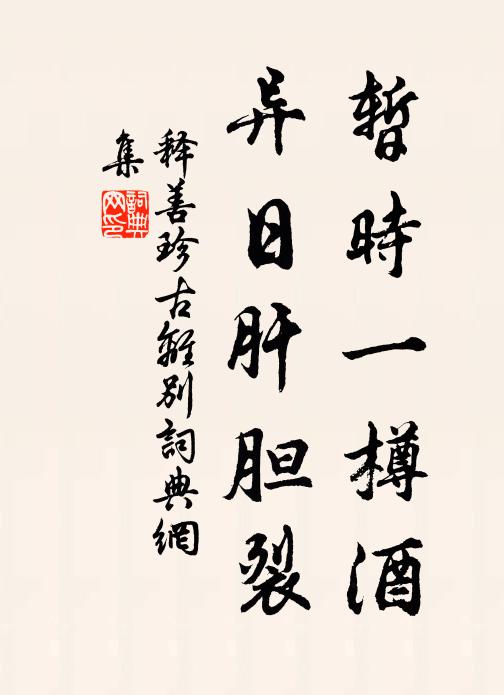 暫時一樽酒
异日肝胆裂
释善珍古離别詞典網
集
詞典
网印